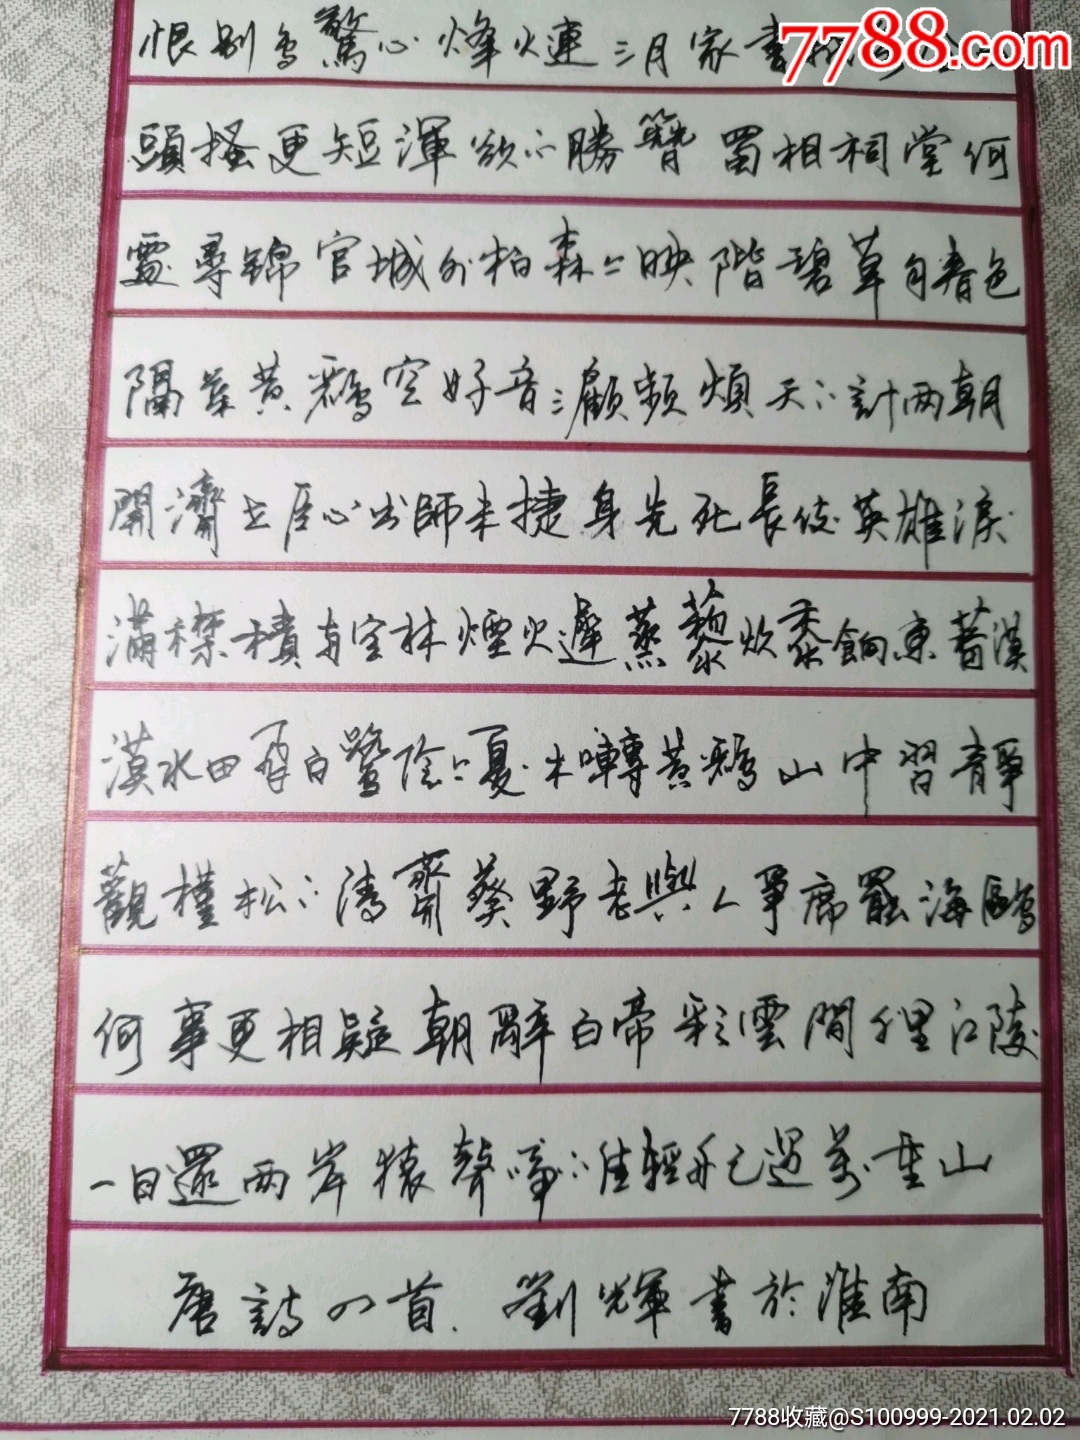 恨别鳥驚心烽火連三月家書
7788.com
頭搔更短渾欲不勝簪蜀相祠堂何
處尋錦官城外柏森〻映階碧草自春色
隔葉黄鸝空好音三顧頻煩天下計两朝
開濟老臣心出師未捷身先死長使英雄淚
滿襟積雨空林煙火遲蒸藜炊黍餉東菑漠
漠水田飛白鷺陰〻夏木囀黄鸝山中習靜
觀槿松下清齋葵野老與人爭席罷海鷗
何事更相疑朝辭白帝彩雲間千里江陵
一日還两岸猿聲啼不住輕舟已過萬重山
唐詩四首.劉輝書於淮南
7788收藏@S100999-2021.02.02